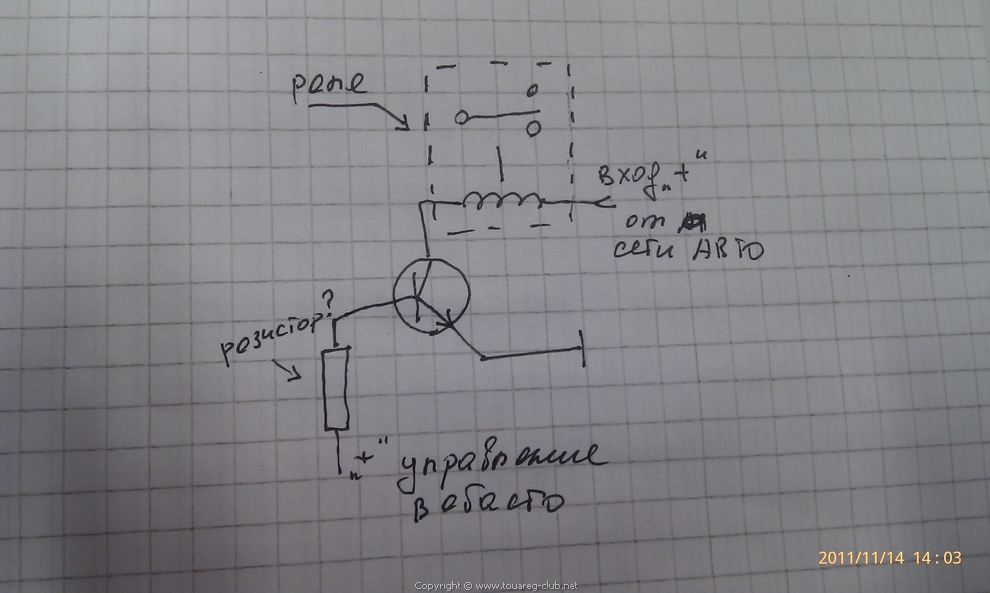 реле
вход „+“
от
сети АВТО
резистор?
„+“ управление
вебасто
2011/11/14 14:03
Copyright © www.touareg-club.net